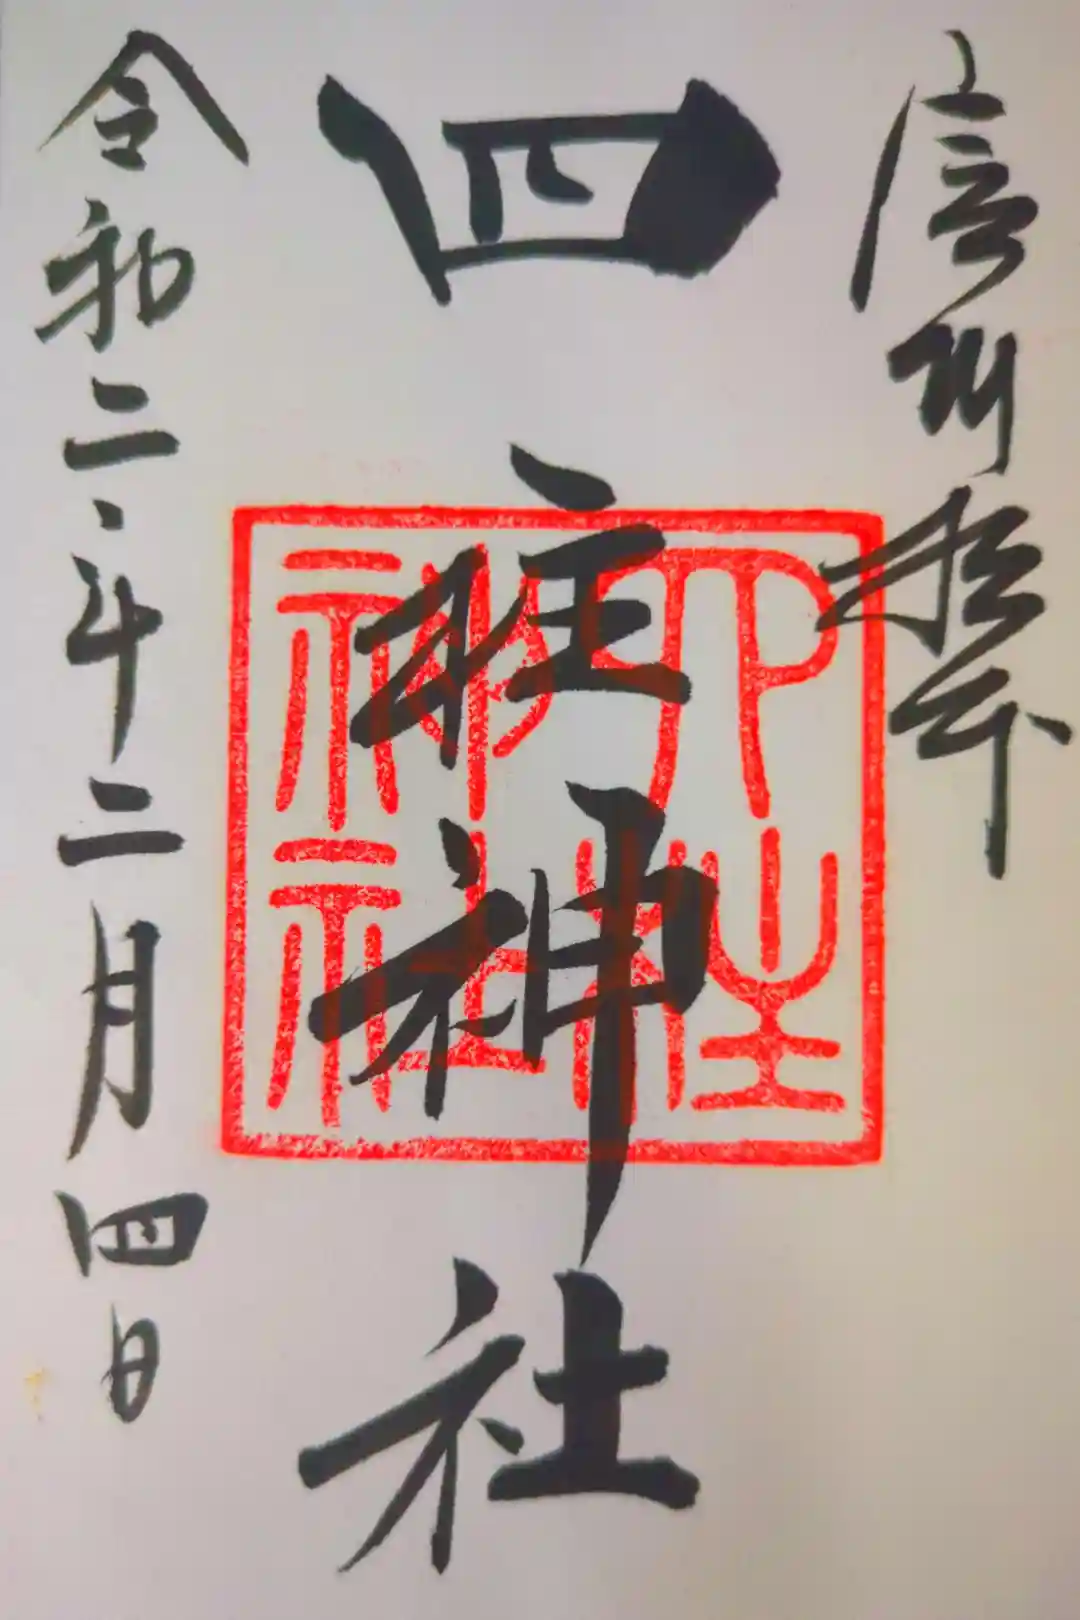 信州松本
四柱神社
四柱
神社
令和二年二月四日